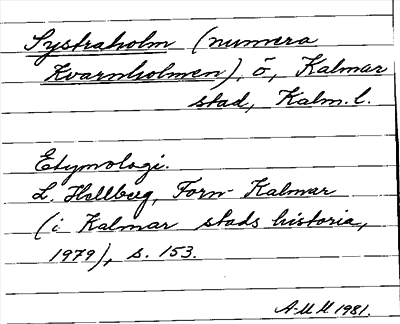 Systraholm (numera
Kvarnholmen), ö, Kalmar
stad, Kalm. l.
Etymologi.
L. Hellberg, Forn-Kalmar
(i Kalmar stads historia,
1979), s. 153.
AMM 1981.